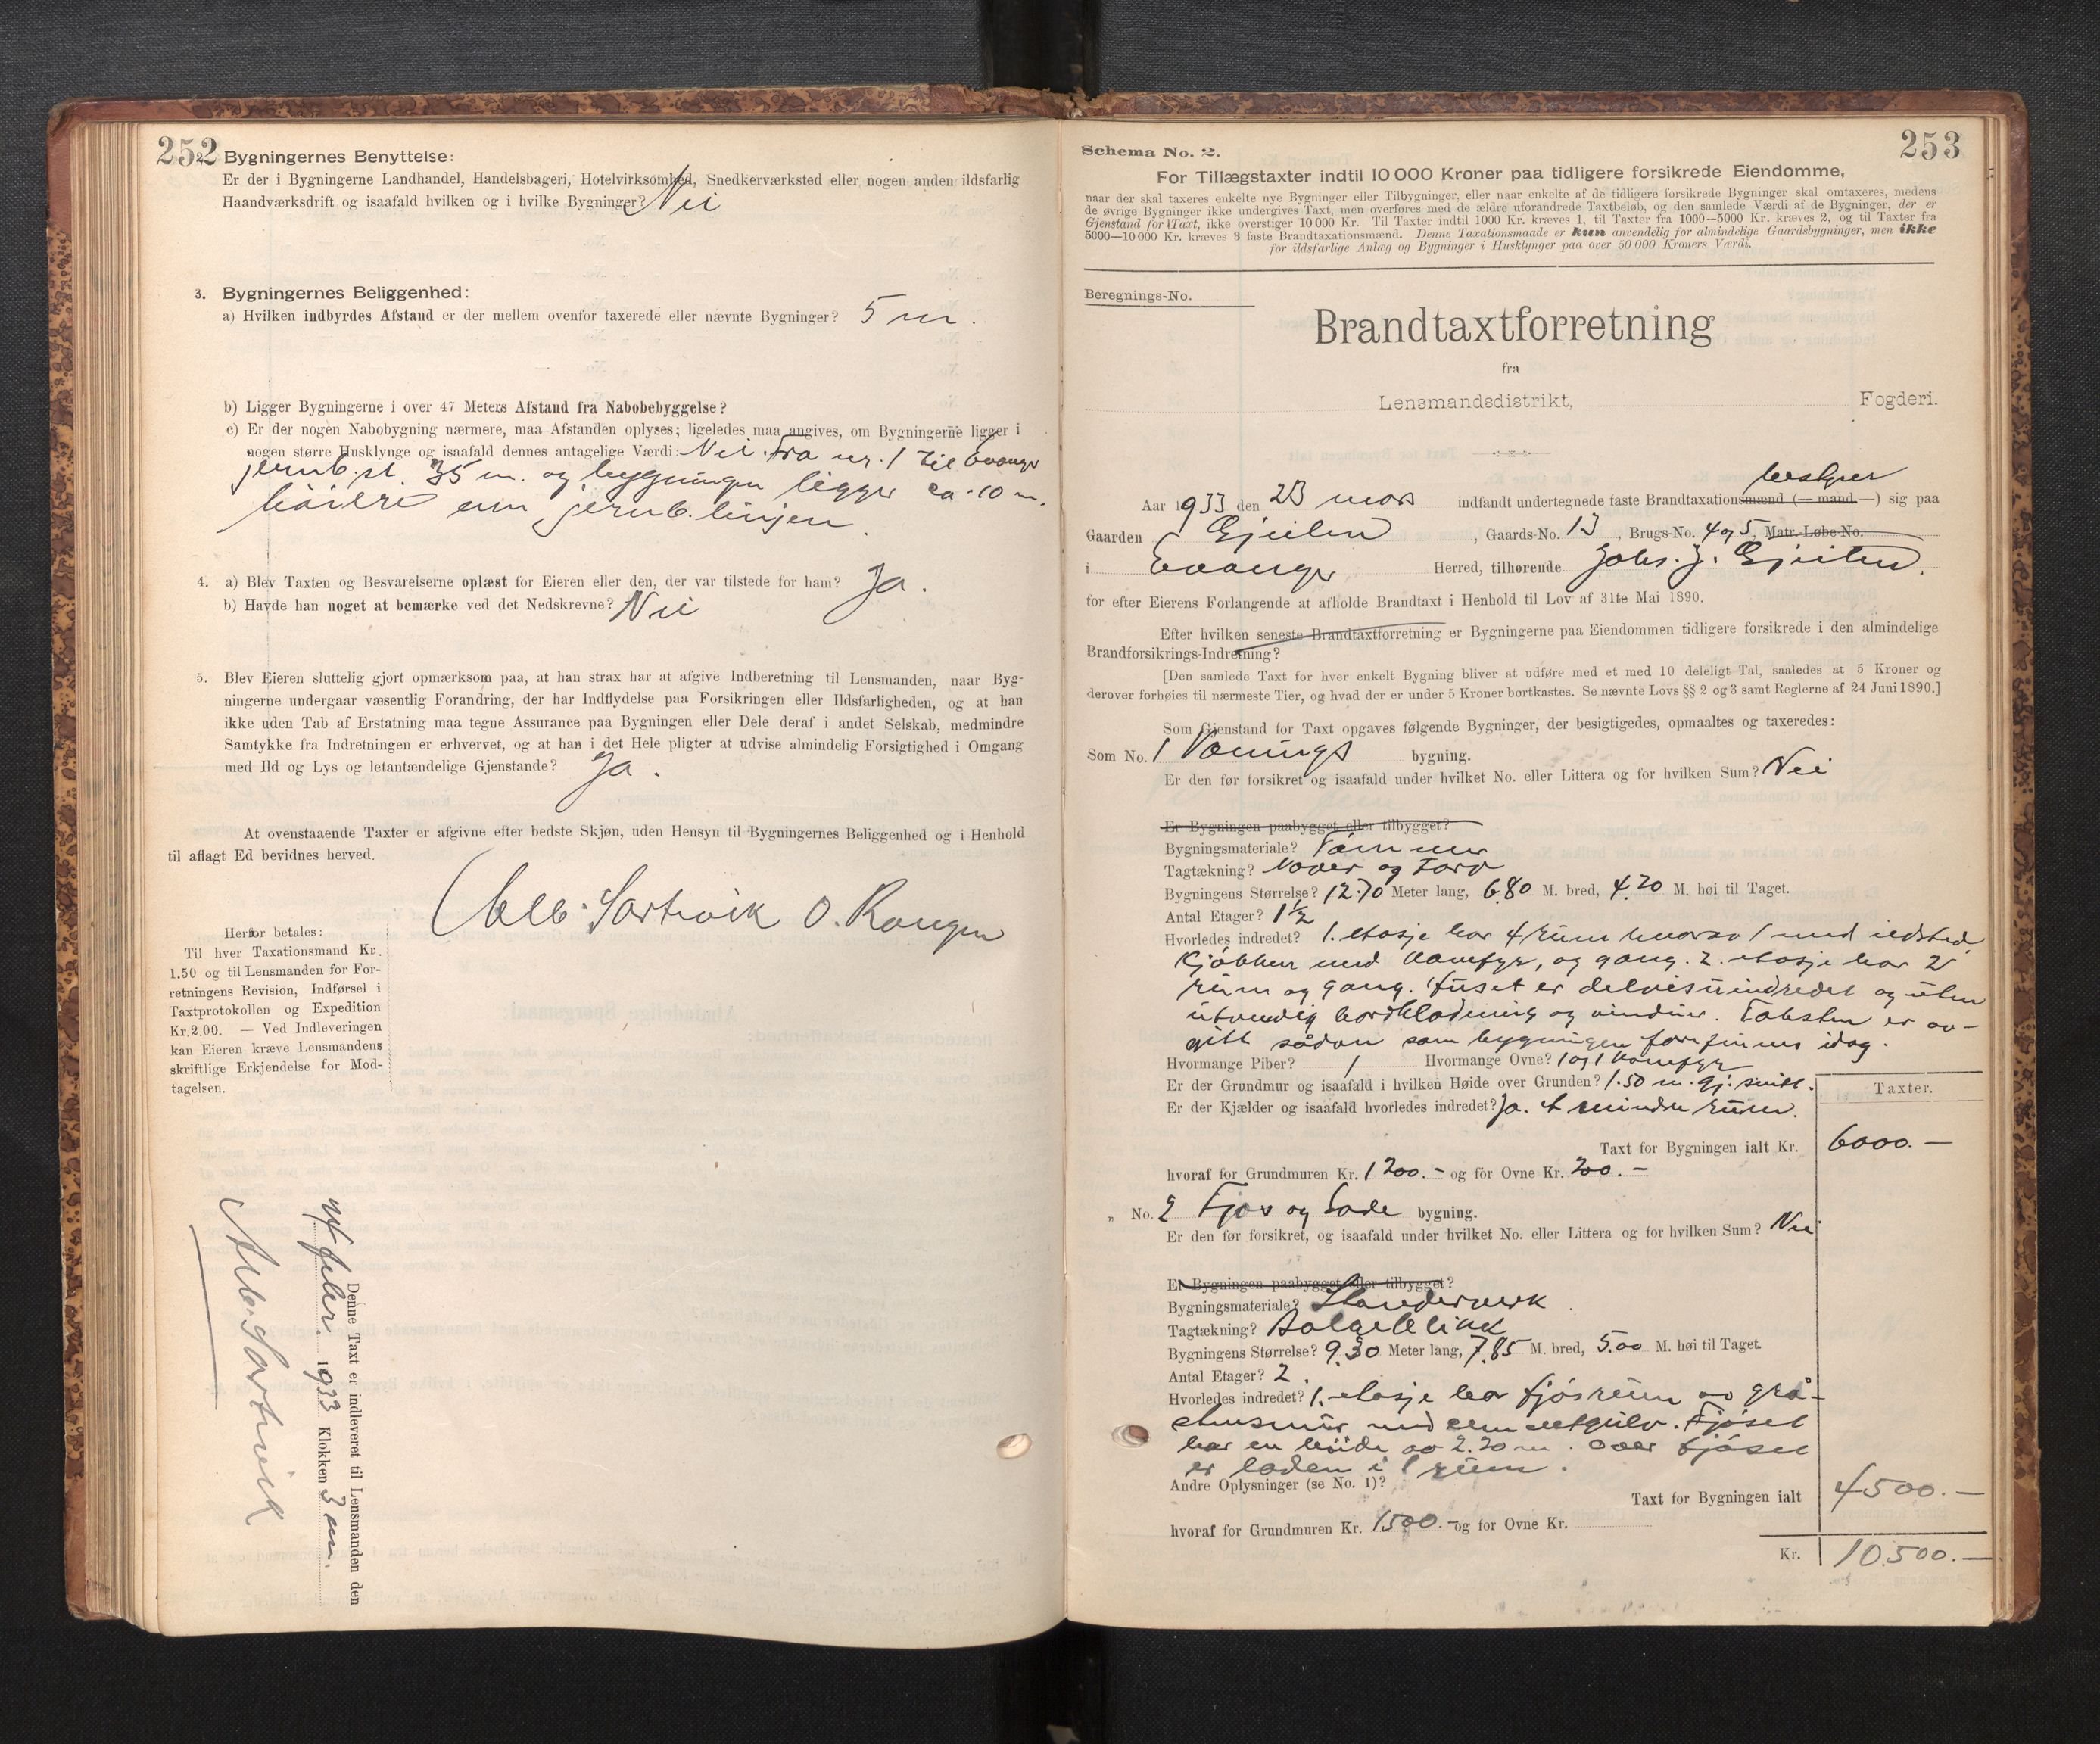 252
2. Bygningernes Benyttelse:
Er der i Bygningerne Landhandel, Handelsbageri, Hotelvirksomhed, Snedkerværksted eller nogen anden ildsfarlig
Haandværksdrift og isaafald hvilken og i hvilke Bygninger? Nei
3. Bygningernes Beliggenhed:
a) Hvilken indbyrdes Afstand er der mellem ovenfor taxerede eller nævnte Bygninger? 5 m.
b) Ligger Bygningerne i over 47 Meters Afstand fra Nabobebyggelse?
c) Er der nogen Nabobygning nærmere, maa Afstanden oplyses; ligeledes maa angives, om Bygningerne ligger i
nogen større Husklynge og isaafald dennes antagelige Værdi: Nei. Fra nr. 1 til Evanger
jernb.st. 35 m. og bygningen ligger ca. 10 m.
høiere enn jernb.linjen.
4. a) Blev Taxten og Besvarelserne oplæst for Eieren eller den, der var tilstede for ham? Ja.
b) Havde han noget at bemærke ved det Nedskrevne? Nei
5. Blev Eieren sluttelig gjort opmærksom paa, at han strax har at afgive Indberetning til Lensmanden, naar Byg-
ningerne undergaar væsentlig Forandring, der har Indflydelse paa Forsikringen eller Ildsfarligheden, og at han
ikke uden Tab af Erstatning maa tegne Assurance paa Bygningen eller Dele deraf i andet Selskab, medmindre
Samtykke fra Indretningen er erhvervet, og at han i det Hele pligter at udvise almindelig Forsigtighed i Omgang
med Ild og Lys og letantændelige Gjenstande? Ja.
At ovenstaaende Taxter er afgivne efter bedste Skjøn, uden Hensyn til Bygningernes Beliggenhed og i Henhold
til aflagt Ed bevidnes herved.
Alb. Sartvik O. Rongen
Herfor betales:
Til hver Taxationsmand Kr.
1.50 og til Lensmanden for For-
retningens Revision, Indførsel i
Taxtprotokollen og Expedition
Kr. 2.00. — Ved Indleveringen
kan Eieren kræve Lensmandens
skriftlige Erkjendelse for Mod-
tagelsen.
Denne Taxt er indleveret til Lensmanden den
1933 Klokken 3 em.
Alb. Sartvik
253
Schema No. 2.
For Tillægstaxter indtil 10 000 Kroner paa tidligere forsikrede Eiendomme,
naar der skal taxeres enkelte nye Bygninger eller Tilbygninger, eller naar enkelte af de tidligere forsikrede Bygninger skal omtaxeres, medens
de øvrige Bygninger ikke undergives Taxt, men overføres med de ældre uforandrede Taxtbeløb, og den samlede Værdi af de Bygninger, der er
Gjenstand for Taxt, ikke overstiger 10 000 Kr. Til Taxter indtil 1000 Kr. kræves 1, til Taxter fra 1000—5000 Kr. kræves 2, og til Taxter fra
5000—10 000 Kr. kræves 3 faste Brandtaxationsmænd. Denne Taxationsmaade er kun anvendelig for almindelige Gaardsbygninger, men ikke
for ildsfarlige Anlæg og Bygninger i Husklynger paa over 50 000 Kroners Værdi.
Beregnings-No.
Brandtaxtforretning
fra
Lensmandsdistrikt, Fogderi.
bestyrer
Aar 1933 den 23 mars indfandt undertegnede faste Brandtaxationsmænd (— mand —) sig paa
Gaarden Gjeilen, Gaards-No. 13, Brugs-No. 4 og 5, Matr.-Løbe-No.
i Evanger Herred, tilhørende Johs. J. Gjeilen.
for efter Eierens Forlangende at afholde Brandtaxt i Henhold til Lov af 31te Mai 1890.
Efter hvilken seneste Brandtaxtforretning er Bygningerne paa Eiendommen tidligere forsikrede i den almindelige
Brandforsikrings-Indretning?
[Den samlede Taxt for hver enkelt Bygning bliver at udføre med et med 10 deleligt Tal, saaledes at 5 Kroner og
derover forhøies til nærmeste Tier, og hvad der er under 5 Kroner bortkastes. Se nævnte Lovs §§ 2 og 3 samt Reglerne af 24 Juni 1890.]
Som Gjenstand for Taxt opgaves følgende Bygninger, der besigtigedes, opmaaltes og taxeredes:
Som No. 1 Vånings bygning.
Er den før forsikret og isaafald under hvilket No. eller Littera og for hvilken Sum? Nei
Er Bygningen paabygget eller tilbygget?
Bygningsmateriale? Tømmer
Tagtækning? Never og torv
Bygningens Størrelse? 12.70 Meter lang, 6.80 M. bred, 4.20 M. høi til Taget.
Antal Etager? 1½
Hvorledes indredet? 1. etasje har 4 rum hvorav 1 med ildsted,
kjøkken med komfyr, og gang. 2. etasje har 2
rum og gang. Huset er delvis uindredet og uten
utvendig bordkledning og vinduer. Taksten er av-
gitt sådan som bygningen forefinnes idag.
Hvormange Piber? 1 Hvormange Ovne? 1 og 1 komfyr
Er der Grundmur og isaafald i hvilken Høide over Grunden? 1.50 m. gj.snitt.
Er der Kjælder og isaafald hvorledes indredet? Ja. et mindre rum.
Taxter.
Taxt for Bygningen ialt Kr. 6000.—
hvoraf for Grundmuren Kr. 1200.— og for Ovne Kr. 200.—
„ No. 2 Fjøs og Lade bygning.
Er den før forsikret, og isaafald under hvilket No. eller Littera og for hvilken Sum? Nei
Er Bygningen paabygget eller tilbygget?
Bygningsmateriale? Stenderverk
Tagtækning? Bølgeblikk
Bygningens Størrelse? 9.30 Meter lang, 7.85 M. bred, 5.00 M. høi til Taget.
Antal Etager? 2.
Hvorledes indredet? 1. etasje har fjøsrum av grå-
stensmur med sementgulv. Fjøset
har en høide av 2.20 m. Over fjøset
er laden i 1 rum.
Andre Oplysninger (se No. 1)?
Taxt for Bygningen ialt 4500.—
hvoraf for Grundmuren Kr. 1500.— og for Ovne Kr.
Kr. 10.500.—